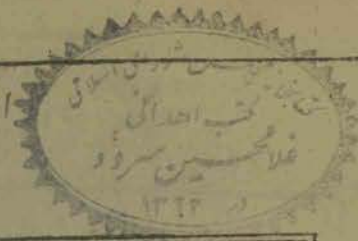 کتابخانه مجلس شورای اسلامی
کتب اهدائی
غلامحسین سرود
در ۱۳۲۳